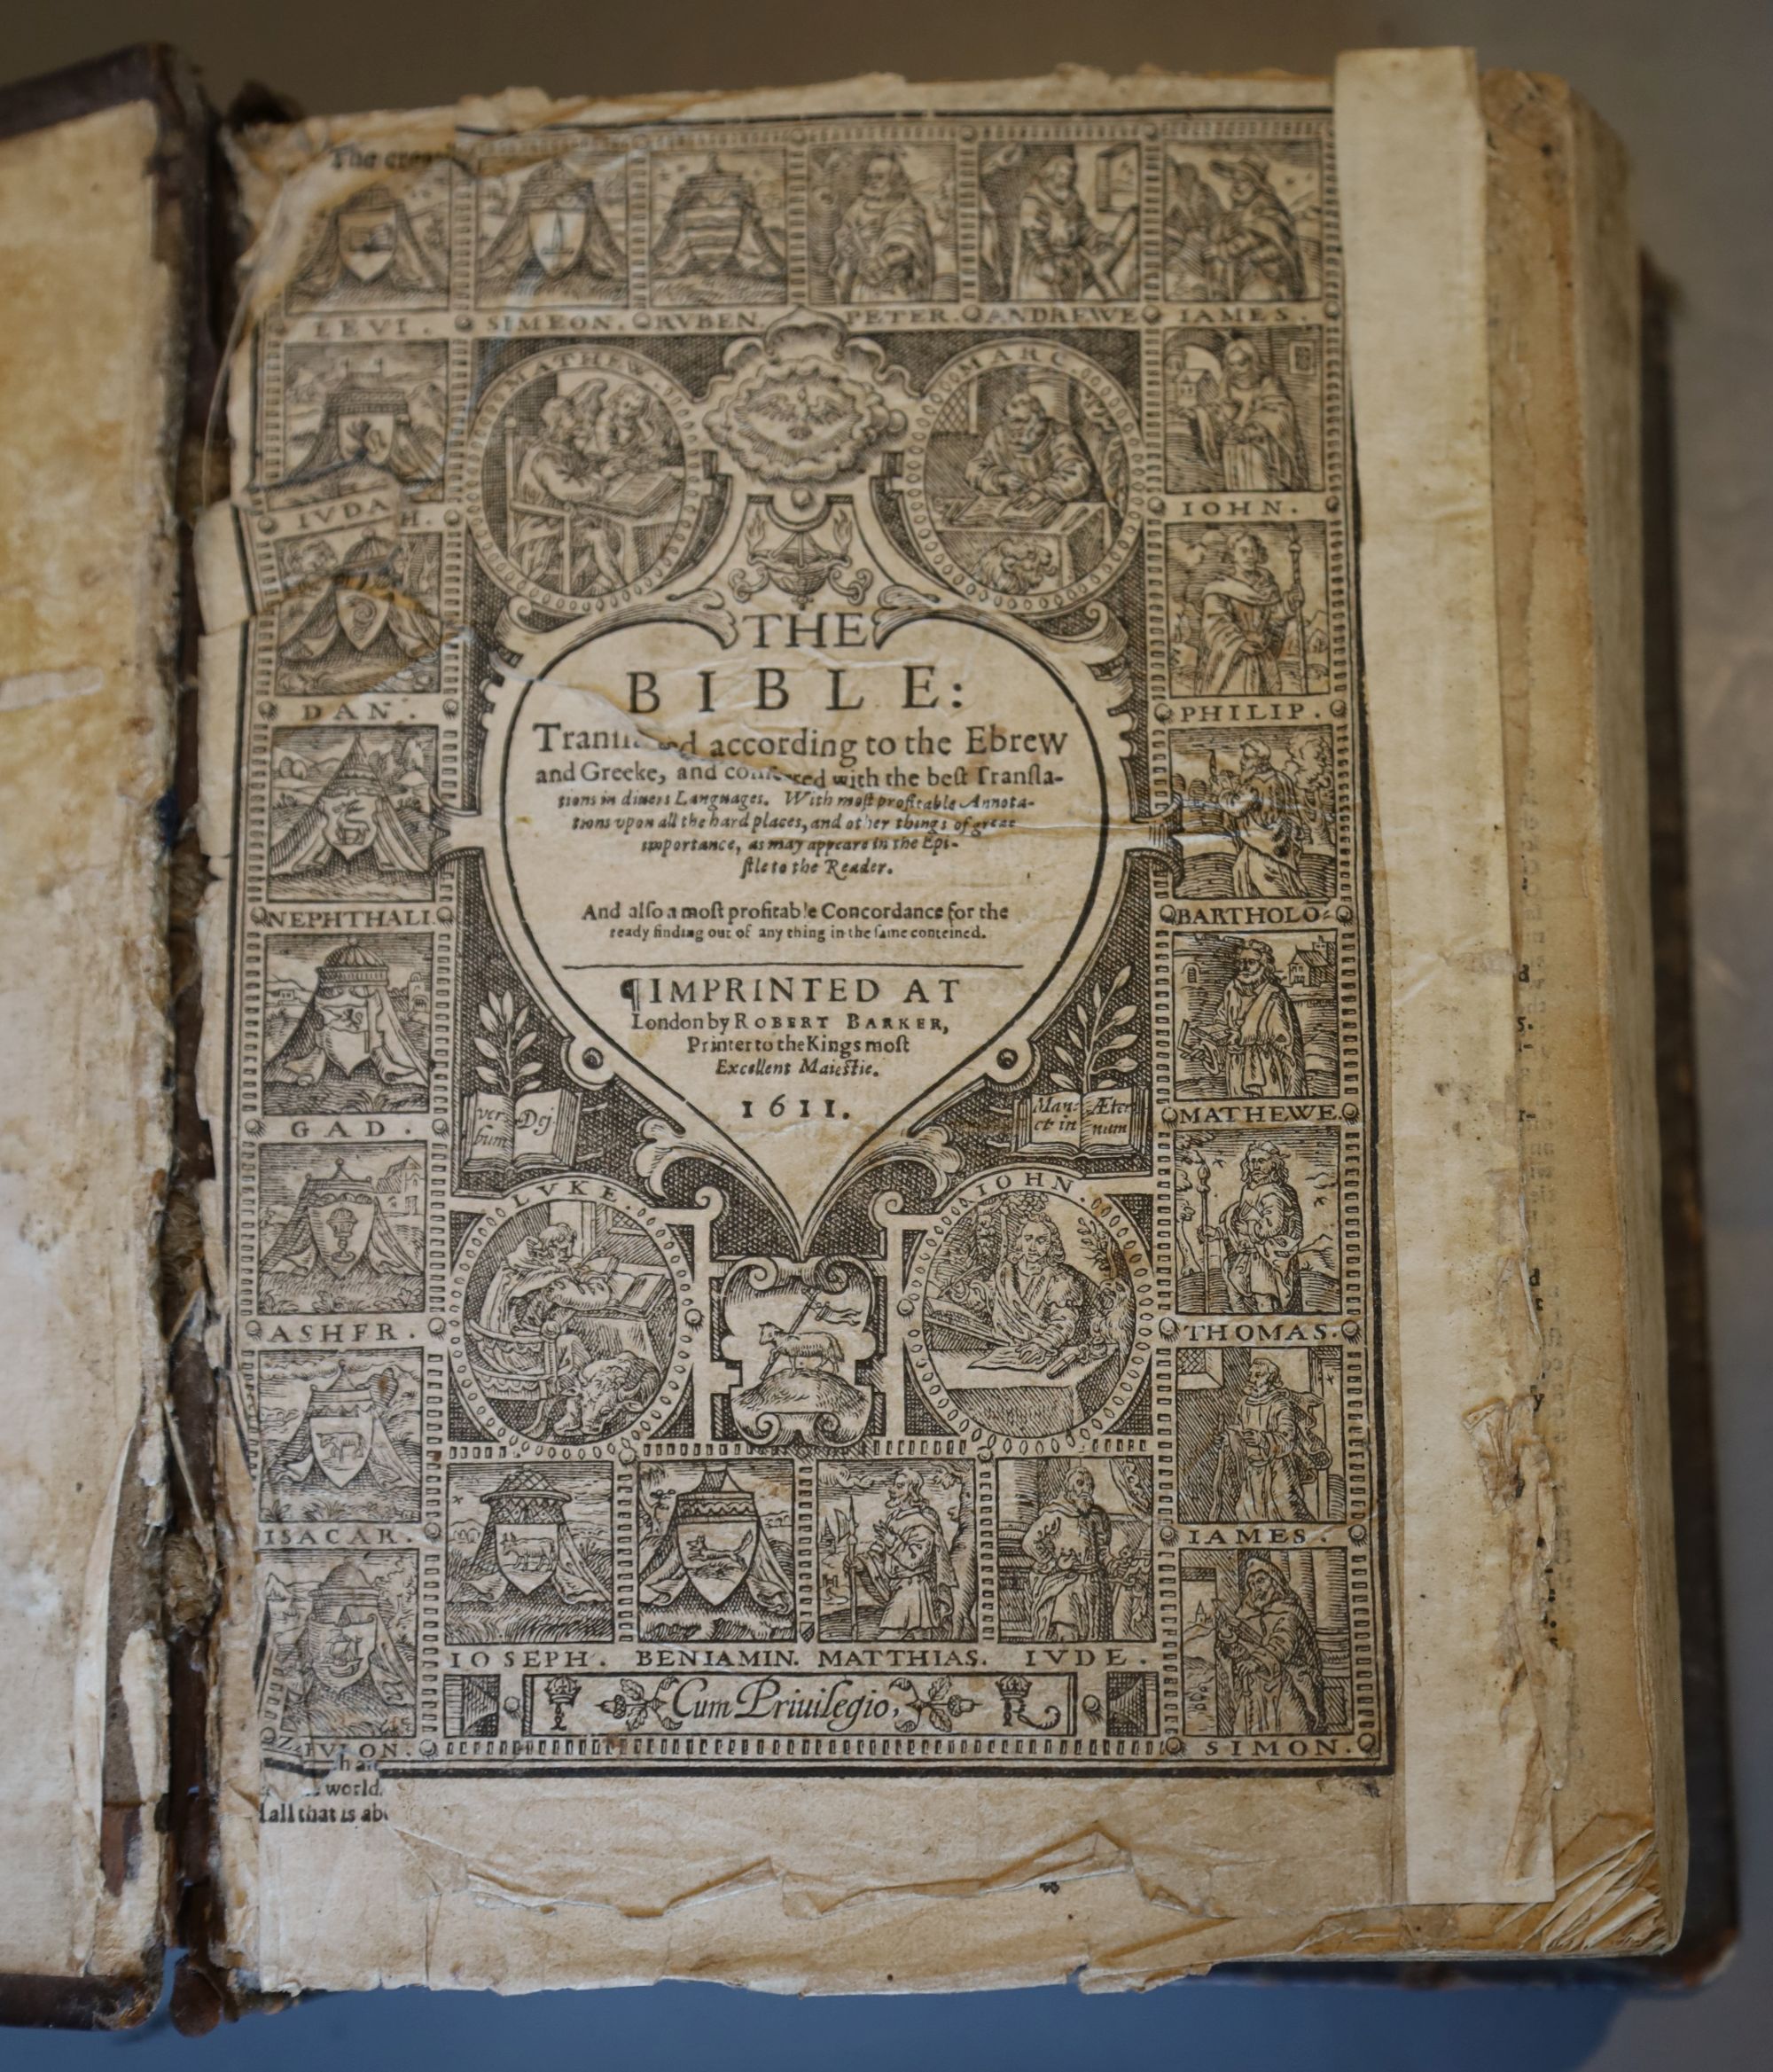 The
LEVI. SIMEON. RVBEN. PETER. ANDREWE IAMES.
MATHEW. MARC.
IVDAH. IOHN.
DAN. PHILIP.
THE
BIBLE:
according to the Ebrew
and Greeke, and with the best Transla-
tions in diuers Languages. With most profitable Annota-
tions upon all the hard places, and other things of great
importance, as may appeare in the Epi-
stle to the Reader.
NEPHTHALI. BARTHOLO-
And also a most profitable Concordance for the
ready finding out of any thing in the same conteined.
¶IMPRINTED AT
London by ROBERT BARKER,
Printer to the Kings most
Excellent Maiestie.
1611.
GAD. MATHEWE.
ver- Dej
bum
Man- Æter
et in num
LVKE. IOHN.
ASHER. THOMAS.
ISACAR. IAMES.
IOSEPH. BENIAMIN. MATTHIAS. IVDE.
I Cum Priuilegio, R
SIMON.
world.
all that is